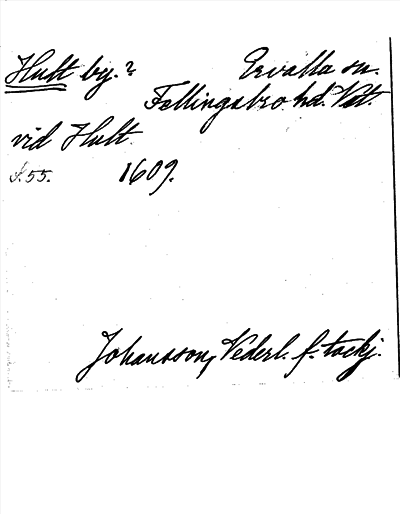 Hult by.? Ervalla sn.
Fellingsbro hd. Vstt.
vid Hult.
s. 55. 1609.
Johansson, Vederl. f. tackj.